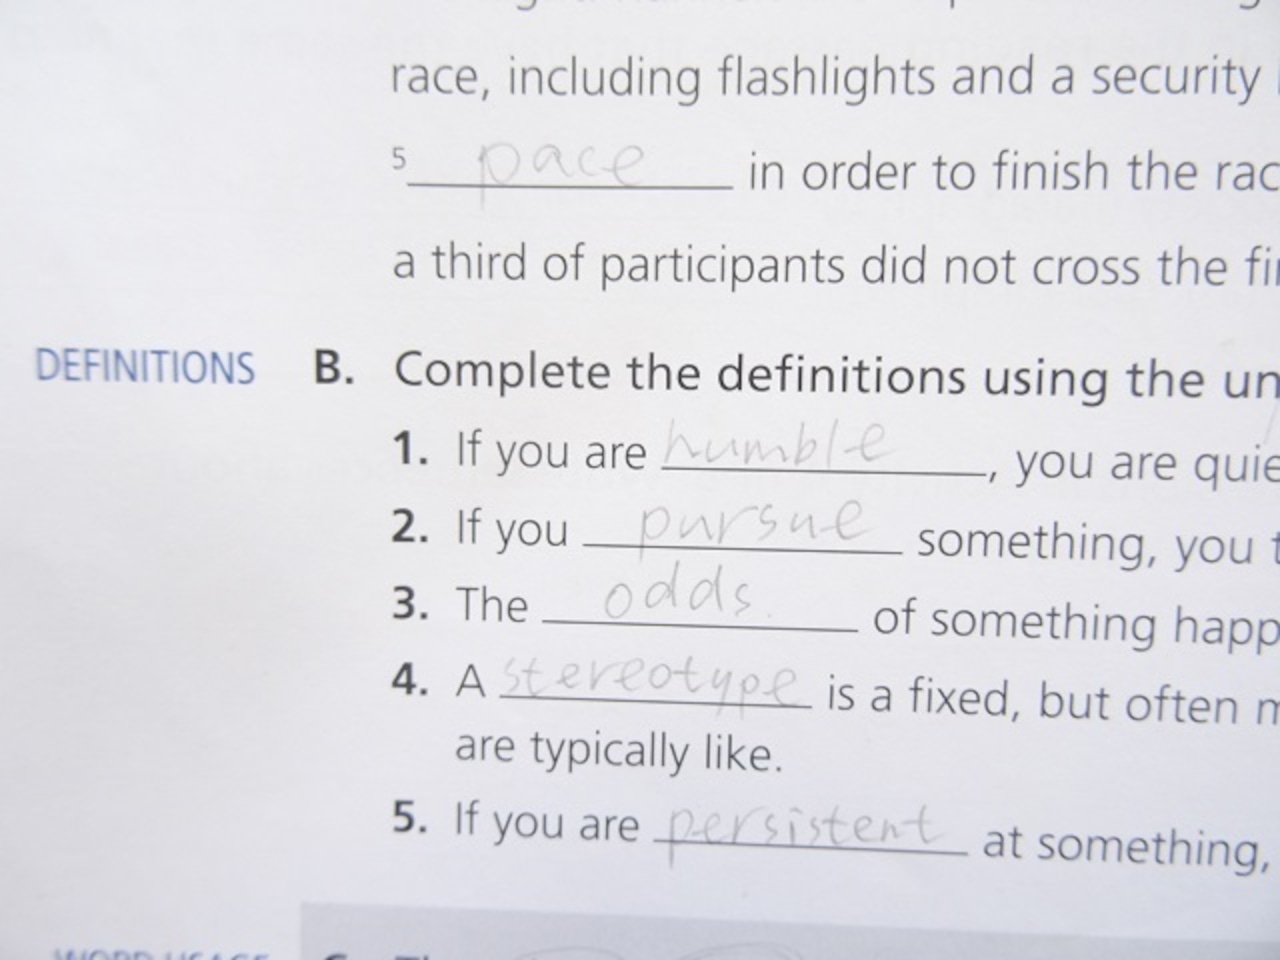 race, including flashlights and a security
5 pace in order to finish the rac
a third of participants did not cross the fi
DEFINITIONS B. Complete the definitions using the un
1. If you are humble, you are quie
2. If you pursue something, you t
3. The odds of something happ
4. A stereotype is a fixed, but often m
are typically like.
5. If you are persistent at something,
WORD USAGE